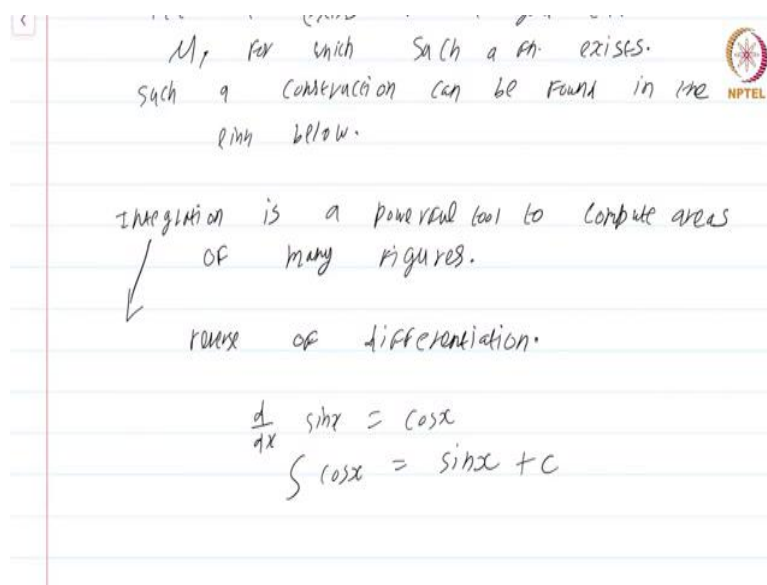 M, for which such a fn. exises.
NPTEL
such a construction can be found in the
link below.
Integration is a powerful tool to compute areas
of many figures.
reverse of differentiation.
d/dx sinx = cosx
∫ cosx = sinx + c